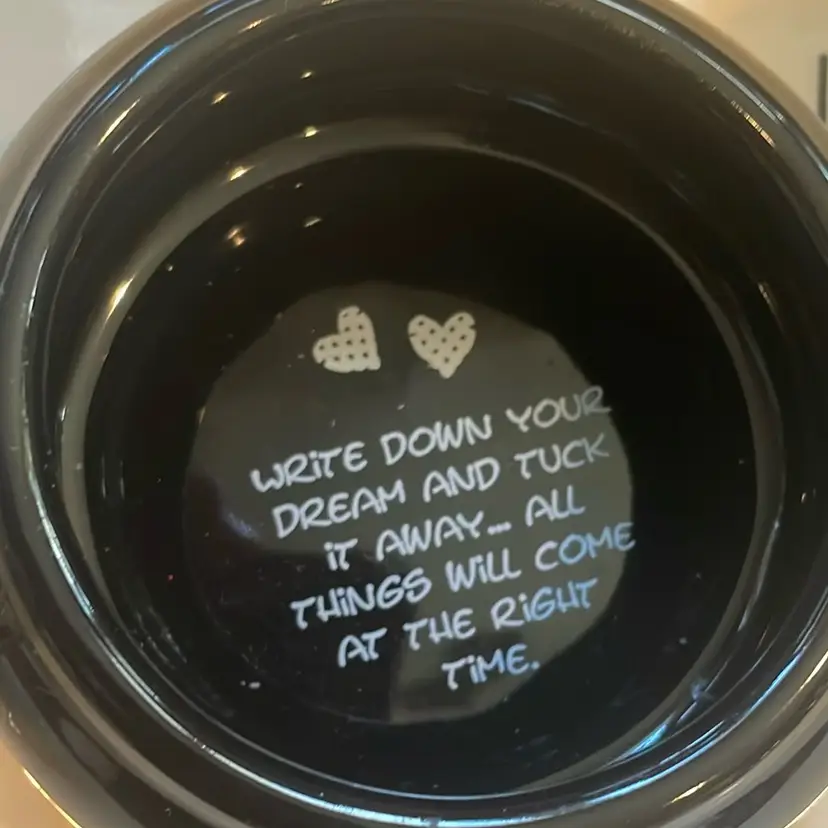 WRITE DOWN YOUR
DREAM AND TUCK
IT AWAY... ALL
THINGS WILL COME
AT THE RIGHT
TIME.